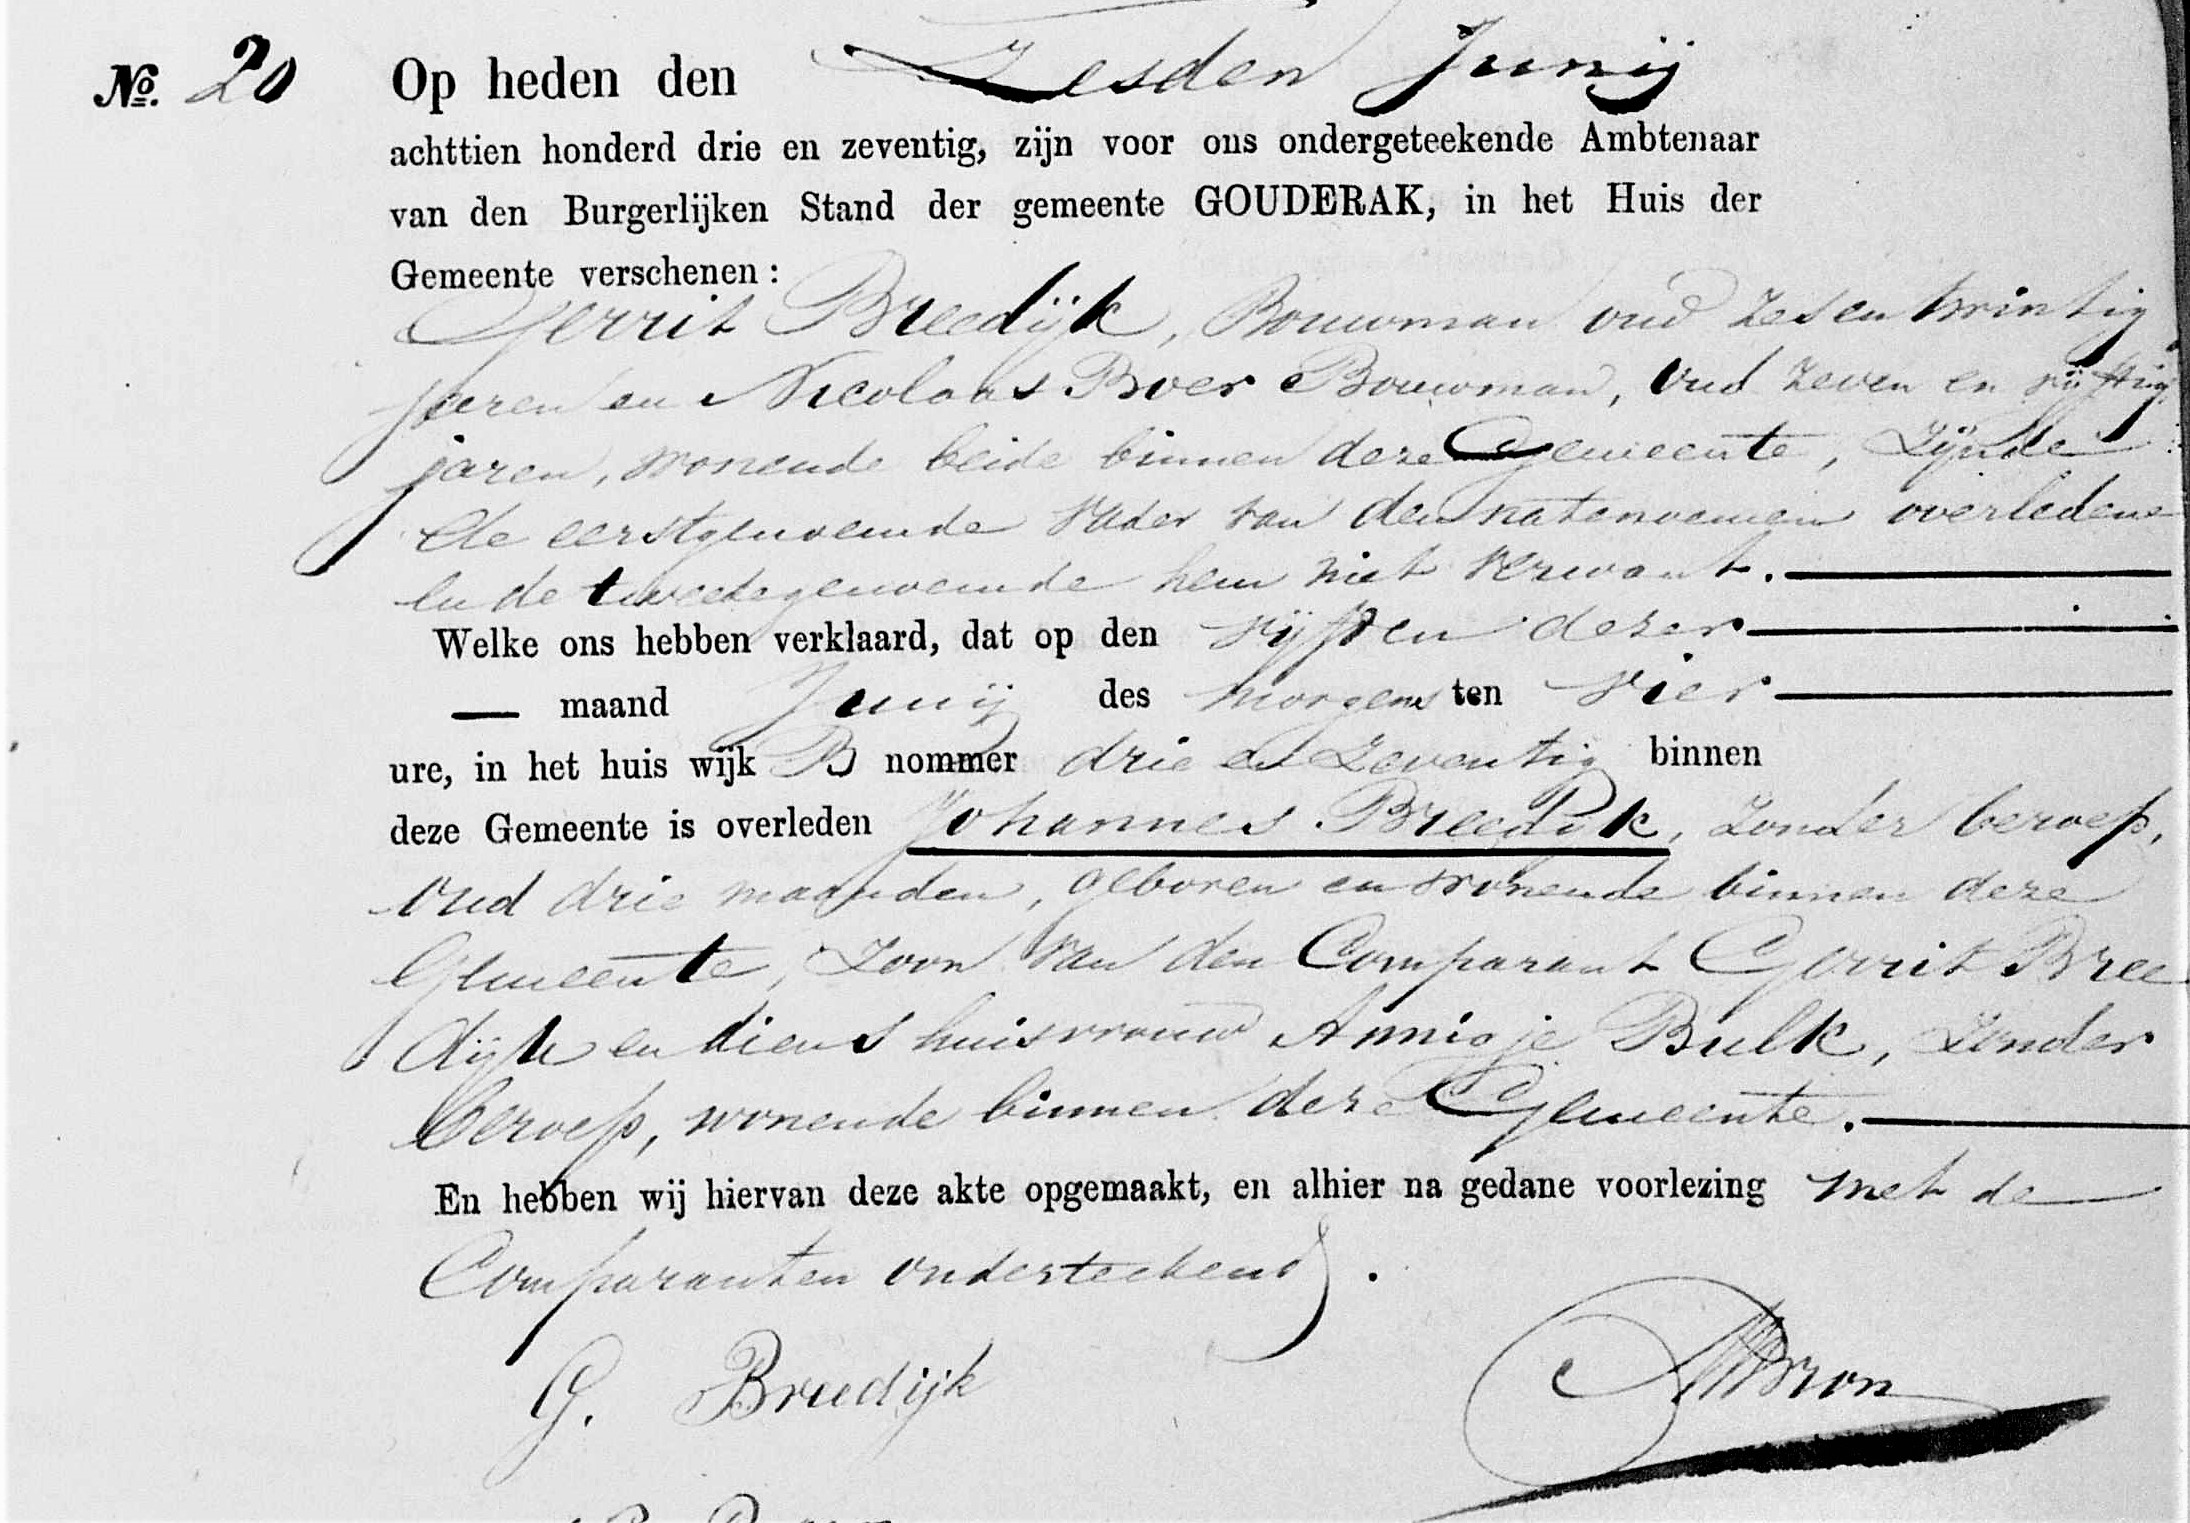 No. 20 Op heden den Zesden Junij
achttien honderd drie en zeventig, zijn voor ons ondergeteekende Ambtenaar
van den Burgerlijken Stand der gemeente GOUDERAK, in het Huis der
Gemeente verschenen:
Gerrit Breedijk, Bouwman oud zesentwintig
jaren en Nicolaas Boer Bouwman, oud zeven en vijftig
jaren, wonende beide binnen deze Gemeente, zijnde
de eerstgenoemde vader van den natenoemen overledene
en de tweedegenoemde hem niet verwant.
Welke ons hebben verklaard, dat op den vijfden dezer
— maand Junij des morgens ten vier
ure, in het huis wijk B nommer drie en zeventig binnen
deze Gemeente is overleden Johannes Breedijk, zonder beroep,
oud drie maanden, geboren en wonende binnen deze
Gemeente, Zoon van den Comparant Gerrit Bree
dijk en diens huisvrouw Annigje Bulk, zonder
beroep, wonende binnen deze Gemeente.
En hebben wij hiervan deze akte opgemaakt, en alhier na gedane voorlezing met de
Comparanten onderteekend.
G. Breedijk
Bron